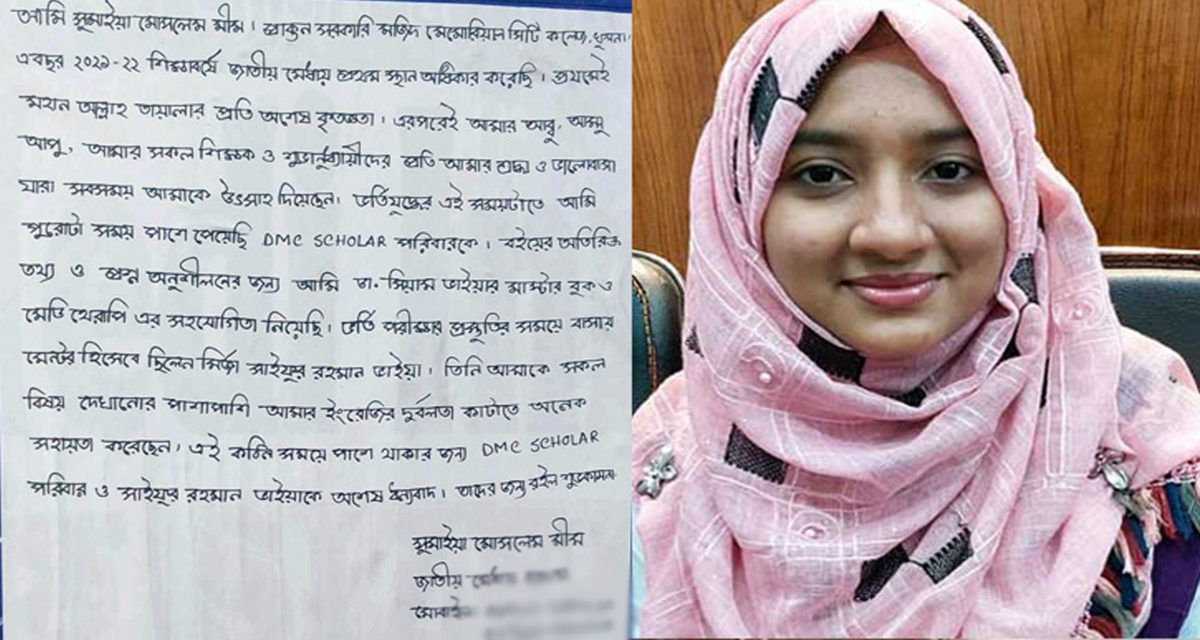 আমি সুমাইয়া মোসলেম মীম। প্রাক্তন সরকারি মজিদ মেমোরিয়াল সিটি কলেজ, খুলনা।
এবছর ২০২১-২২ শিক্ষাবর্ষে জাতীয় মেধায় প্রথম স্থান অধিকার করেছি। প্রথমেই
মহান আল্লাহ তায়ালার প্রতি অশেষ কৃতজ্ঞতা। এরপরেই আমার আব্বু, আম্মু
আপু, আমার সকল শিক্ষক ও শুভানুধ্যায়ীদের প্রতি আমার শ্রদ্ধা ও ভালোবাসা
যারা সবসময় আমাকে উৎসাহ দিয়েছেন। ভর্তিযুদ্ধের এই সময়টাতে আমি
পুরোটা সময় পাশে পেয়েছি DMC SCHOLAR পরিবারকে। বইয়ের অতিরিক্ত
তথ্য ও প্রশ্ন অনুশীলনের জন্য আমি ডা. সিয়াম ভাইয়ার মাস্টার বুক ও
মেডি থেরাপি এর সহযোগিতা নিয়েছি। ভর্তি পরীক্ষার প্রস্তুতির সময়ে বাসার
মেন্টর হিসেবে ছিলেন মির্জা সাইফুর রহমান ভাইয়া। তিনি আমাকে সকল
বিষয় দেখানোর পাশাপাশি আমার ইংরেজির দুর্বলতা কাটাতে অনেক
সহায়তা করেছেন। এই কঠিন সময়ে পাশে থাকার জন্য DMC SCHOLAR
পরিবার ও সাইফুর রহমান ভাইয়াকে অশেষ ধন্যবাদ। তাদের জন্য রইল শুভকামনা
সুমাইয়া মোসলেম মীম
জাতীয়
মোবাইল